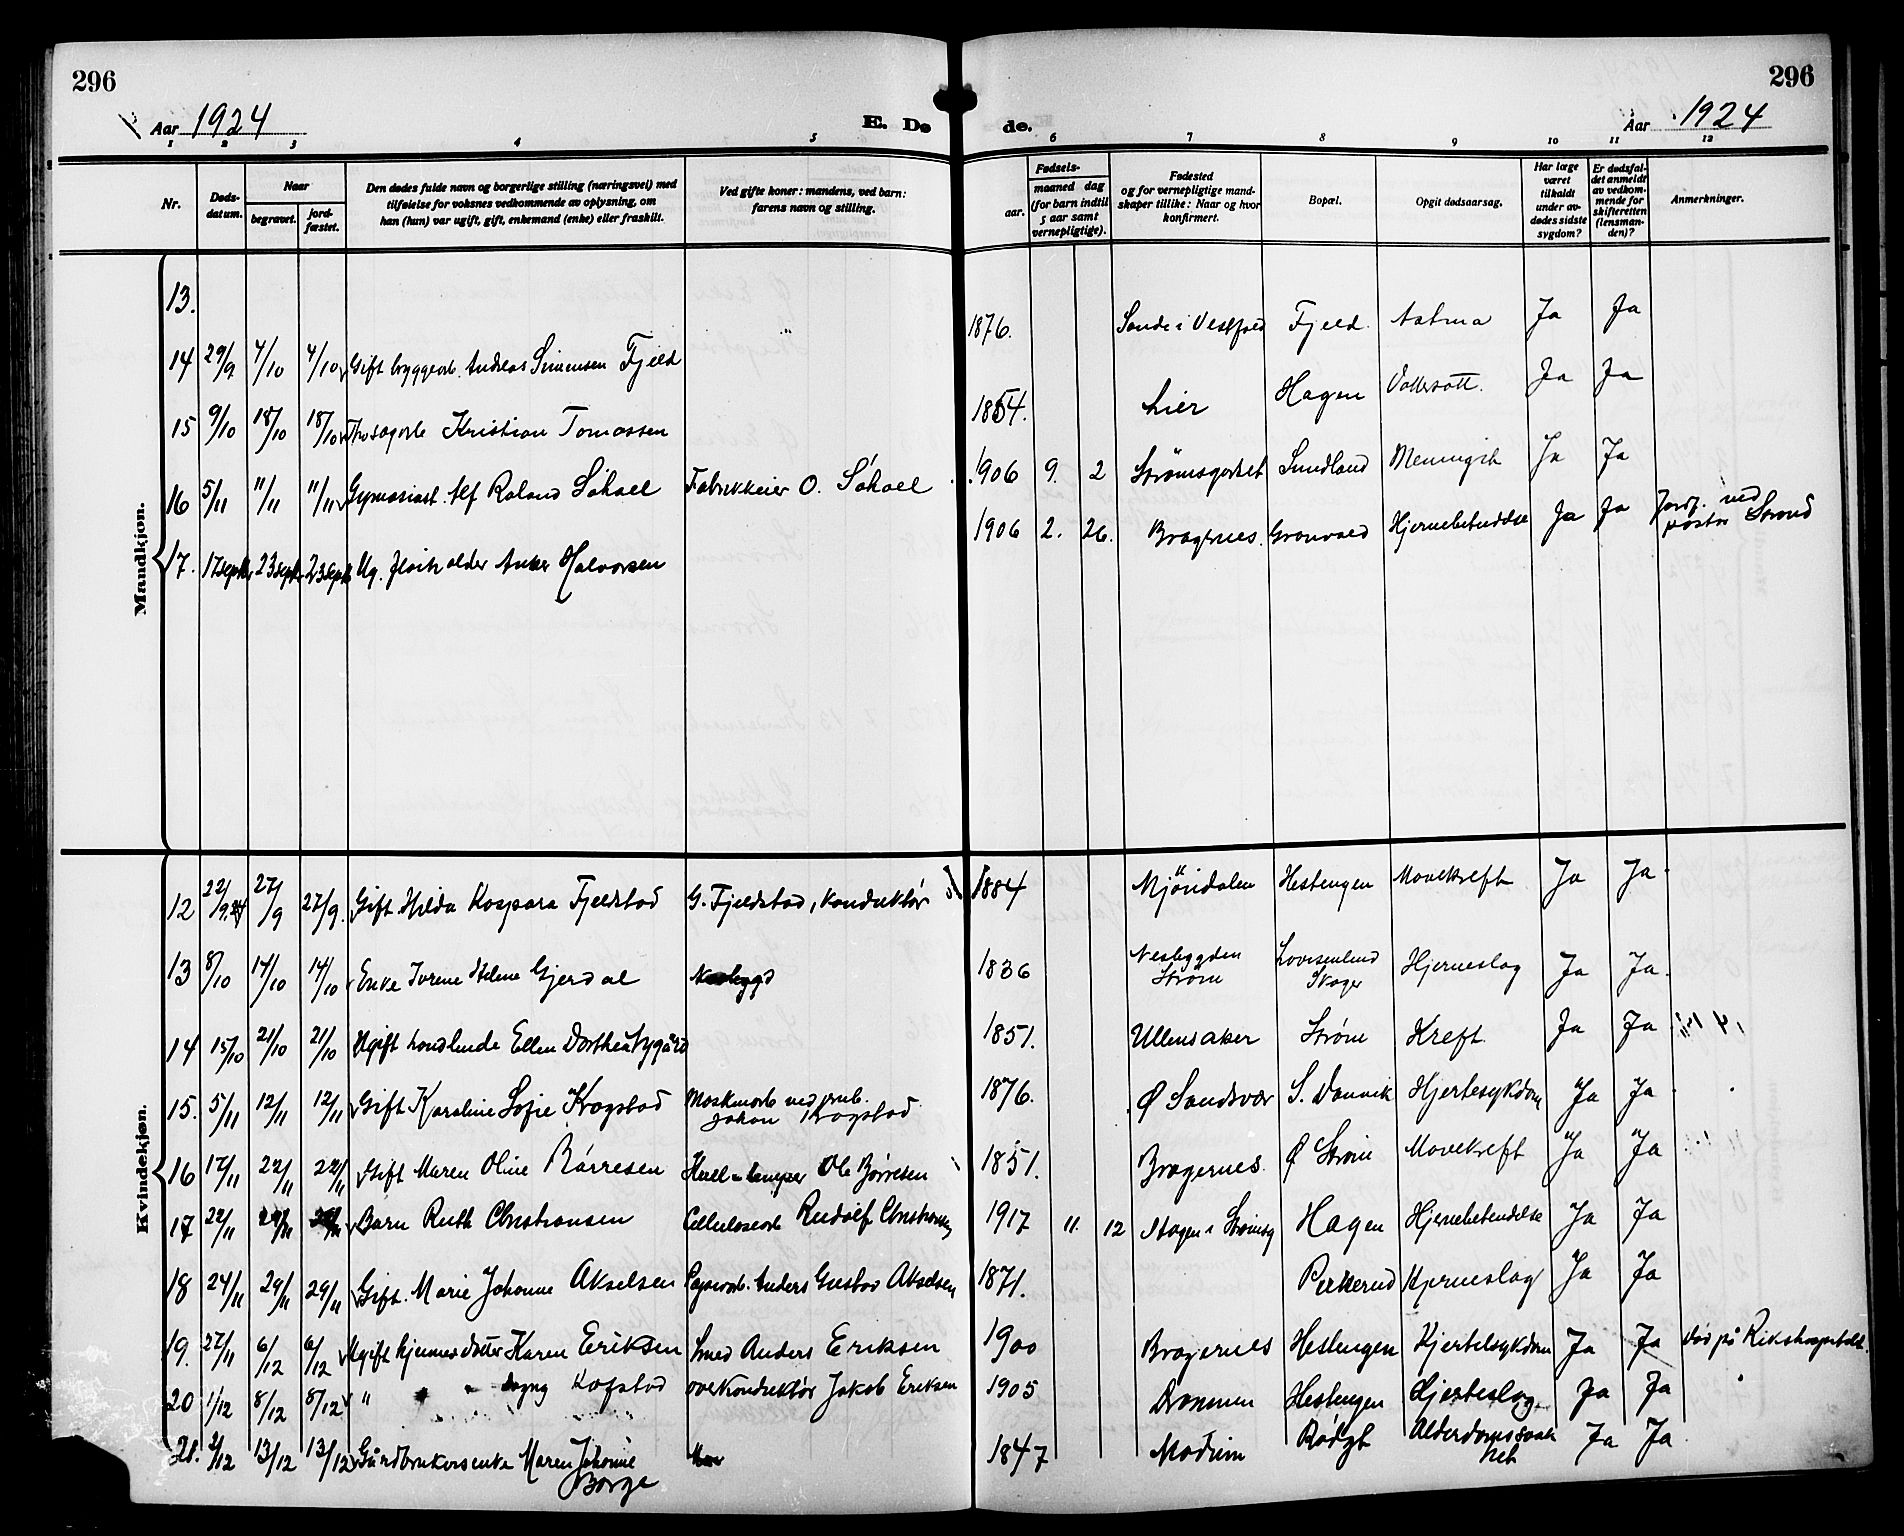 296
296
Aar 1924
E. Døde.
Aar 1924
1 2 3 4 5 6 7 8 9 10 11 12
Nr.
Dødsdatum.
Naar
begravet.
jordfæstet.
Den dødes fulde navn og borgerlige stilling (næringsvei) med
tilføielse for voksnes vedkommende av oplysning, om
han (hun) var ugift, gift, enkemand (enke) eller fraskilt.
Ved gifte koner: mandens, ved barn:
farens navn og stilling.
Fødsels-
aar.
maaned dag
(for barn indtil
5 aar samt
vernepligtige).
Fødested
og for vernepligtige mand-
skaper tillike: Naar og hvor
konfirmert.
Bopæl.
Opgit dødsaarsag.
Har læge
været
tilkaldt
under av-
dødes sidste
sygdom?
Er dødsfal-
det anmeldt
av vedkom-
mende for
skifteretten
(lensman-
den)?
Anmerkninger.
Mandkjøn.
13.
14 29/9 4/10 4/10 Gift bryggearb. Andreas Simensen Fjeld 1876. Sande i Vestfold Fjeld. Astma Ja Ja
15 9/10 18/10 18/10 Kristian Tomassen 1854. Lier Hagen Vattersott. Ja Ja
16 5/11 11/11 11/11 Gymnasiast. Alf Roland Söhoel Fabrikkeier O. Söhoel 1906 9. 2 Strømsgodset Sundland Meningit Ja Ja
17. 17 sept 23 sept 23 sept Ug. Anker Halvorsen 1906 2. 26. Bragernes. Grønvold Hjernebetendelse Ja Ja Jordf. ved pastor Strand
Kvindekjøn.
12 22/9.24 27/9 27/9. Gift Hilda Kaspara Fjeldstad G. Fjeldstad, Konduktör 1884 Mjöndalen Hestengen Mavekreft Ja Ja.
13 8/10 14/10 14/10 Enke Helene Gjerdal Nesbygd 1836 Nesbygden Strøm Lovisenlund Skoger Hjerneslag Ja Ja.
14 15/10 21/10 21/10 Ugift Ellen Dorthea Nygård 1851. Ullensaker Strøm Kreft. Ja Ja
15. 5/11 12/11 12/11 Gift Karoline Sofie Krogstad Maskinarb ved jernb. Johan Krogstad. 1876. Ø Sandsvær S. Danvik Hjertesykdom Ja Ja
16 17/11 22/11 22/11 Gift Maren Oline Börresen Ole Børresen 1851. Bragernes. Ø Strøm Mavekreft Ja Ja
17 22/11 Barn Ruth Christiansen Cellulosearb Rudolf Christiansen 1917 11. 12 Hagen i Strømsg Hagen Hjernebetendelse Ja Ja
18 24/11 29/11 29/11 Gift. Marie Johanne Akselsen Papirarb. Anders Gustav Akselsen 1871. Perkerud Hjerneslag Ja Ja
19. 27/11 6/12 6/12 Ugift hjemmedatter Karen Eriksen Smed Anders Eriksen 1900 Bragernes Hestengen Hjertesykdom Ja Ja død på Rikshospitalet.
20 1/12 8/12 8/12 " " Dagny Hofstad Overkonduktör Jakob Eriksen 1905 Drammen Hestengen Hjerteslag Ja Ja
21. 2/12 13/12 13/12 Gårdbrukerenke Maren Johanne Borge 1847 Modum Rødgt Alderdomssvakhet Ja Ja